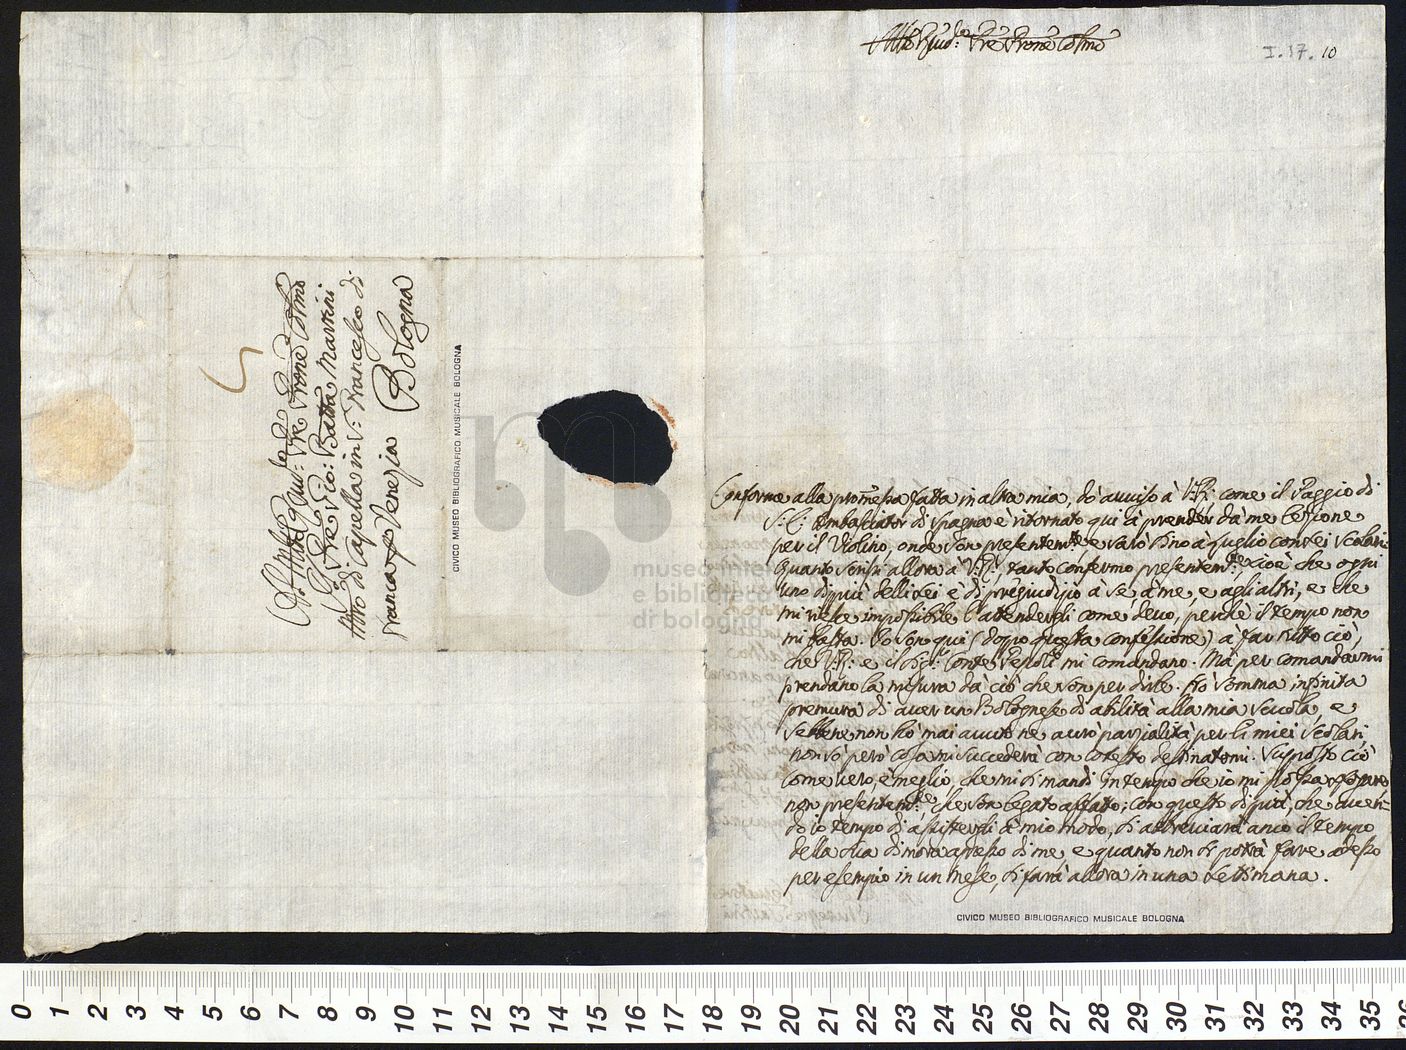 Molto Rnd:o Pre Prone Colmo
I. 17. 10
Conforme alla promessa fatta in altra mia, dò avviso à V: R: come il Paggio di
S: E: Ambasciator di Spagna è ritornato qui à prender dà me lezzione
per il Violino, onde son presentem:te e sarò sino à luglio con sei Scolari.
Quanto scrissi allora à V: R:, tanto confermo presentem:te, cioè che ogni
uno di più delli sei è di pregiudizio à se, à me, e agli altri, e che
mi riesce impossibile l'attendergli come devo, perchè il tempo non
mi basta. Io son qui (doppo questa confessione) à far tutto ciò,
che V: R: e il Sig:r Conte Pepoli mi comandano. Mà per comandarmi
prendano la misura dà ciò che son per dirle. Hò somma infinita
premura di aver un Bolognese di abilità alla mia scuola, e
sebbene non hò mai avuto ne avrò parzialità per li miei Scolari
non sò però cosa mi succederà con cotesto destinatomi. Supposto ciò
come vero, è meglio, che mi si mandi in tempo che io mi possa sfogare
non presentem:te che son legato affatto; con questo di più, che aven-
do io tempo di assistergli à mio modo, si abbreviarà anco il tempo
della sua dimora apresso di me, e quanto non si potrà fare adesso
per esempio in un mese, si farà allora in una settimana.
CIVICO MUSEO BIBLIOGRAFICO MUSICALE BOLOGNA
Al Molto Rnd:o Pre Prone Colmo
Il Pre Gio: Batta Martini
Mro di Capella in S: Francesco di
franca p Venezia Bologna
CIVICO MUSEO BIBLIOGRAFICO MUSICALE BOLOGNA
museo inter
e biblioteca de
di bologna
0 1 2 3 4 5 6 7 8 9 10 11 12 13 14 15 16 17 18 19 20 21 22 23 24 25 26 27 28 29 30 31 32 33 34 35 36